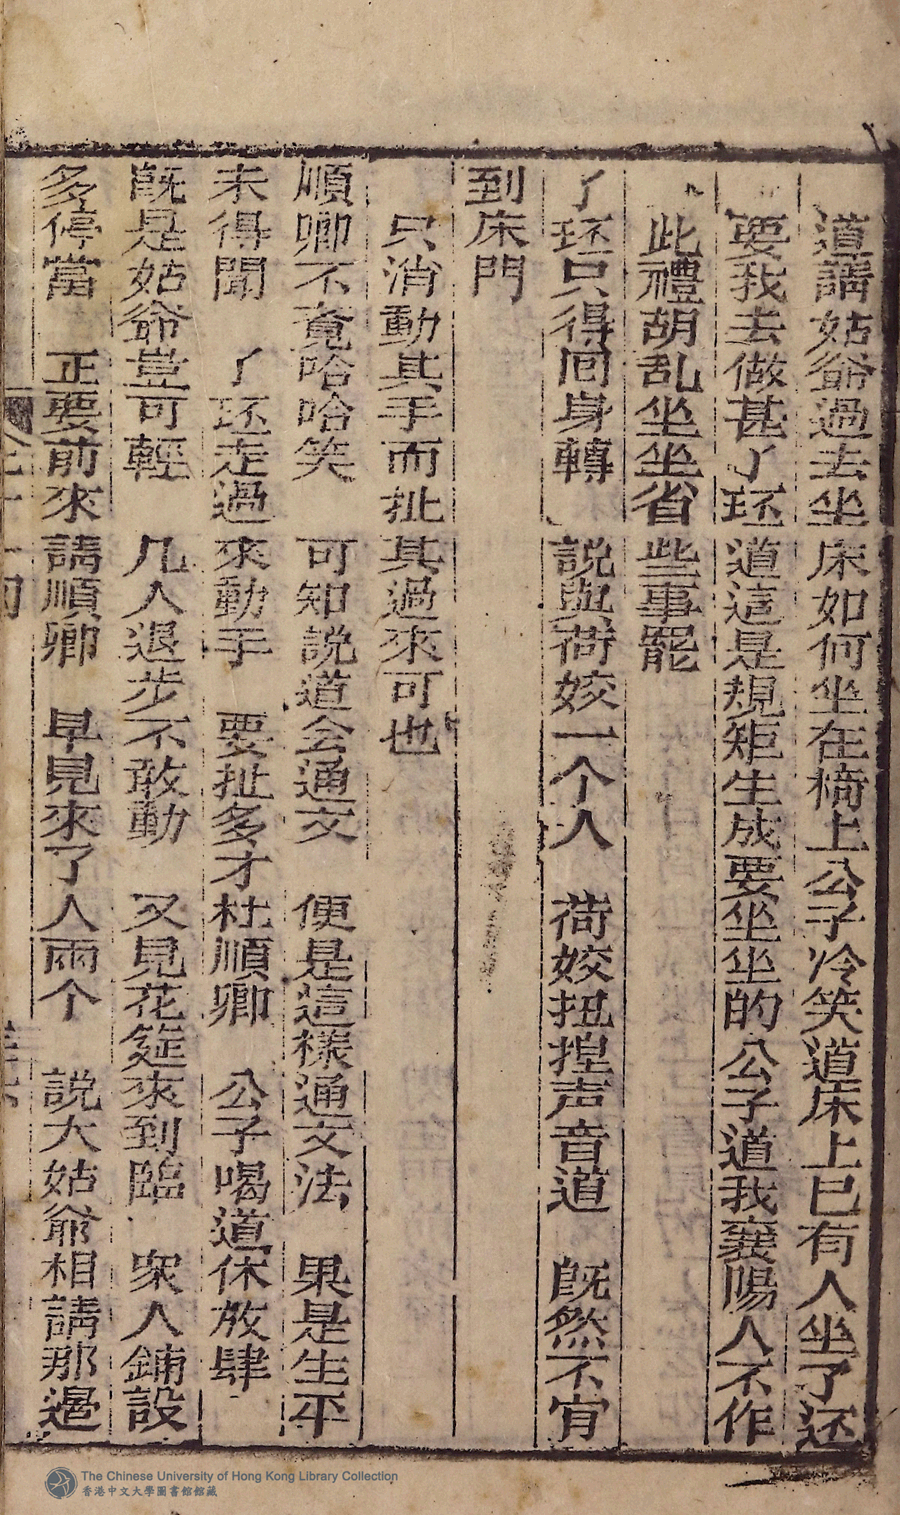 道請姑爺過去坐床如何坐在椅上公子冷笑道床上已有人坐了还
要我去做甚了环道這是規矩生成要坐坐的公子道我襄陽人不作
此禮胡乱坐坐省些事罷
了环只得囘身轉 説與荷姣一个人 荷姣扭揑声音道 旣然不肯
到床門
只消動其手而扯其過來可也
順卿不竟哈哈笑 可知説道会通文 便是這樣通文法 果是生平
未得聞 了环走過來動手 要扯多才杜順卿 公子喝道休放肆
旣是姑爺豈可輕 几人退步不敢動 又見花筵來到臨 衆人鋪設
多停當 正要前來請順卿 早見來了人兩个 説大姑爺相請那邊
The Chinese University of Hong Kong Library Collection
香港中文大學圖書館館藏